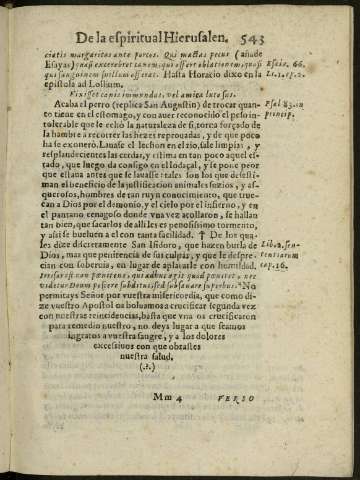 De la espiritual Hierusalen. 543
ciatis margaritas ante porcos. Qui mactas pecus (añade
Esayas) quasi excerebret canem, qui offert oblationem, quasi
qui sanguinem suillum offerat. Hasta Horacio dixo en la
epistola ad Lollium.
Esaix. 66.
Li. 1. ep. 2.
Vixisset canis immundus, vel amica luto sus.
Acaba el perro (replica San Augustin) de trocar quan-
to tiene en el estomago, y con auer reconocido el peso in-
tolerable que le echò la naturaleza de sì, torna forçado de
la hambre a recoger las hezes reprouadas, y de que poco
ha se exonerò. Lauase el lechon en el rio, sale limpias, y
resplandecientes las cerdas, y estima en tan poco aquel es-
tado, que luego da consigo en el lodaçal, y se pone peor
que estaua antes que se lauasse: tales son los que desesti-
man el beneficio de la justificacion animales suzios, y as-
querosos, hombres de tan ruyn conocimiento, que true-
can a Dios por el demonio, y el cielo por el infierno, y en
el pantano cenagoso donde vna vez atollaron, se hallan
tan bien, que sacarlos de alli les es penosissimo tormento,
y assi se bueluen a el con tanta facilidad. † De los qua-
les dize discretamente San Isidoro, que hazen burla de
Dios, mas que penitencia de sus culpas, y que le despre-
cian con soberuia, en lugar de aplacarle con humildad.
Psal 83. in
princip.
Lib. 2. sen-
tentiarum
cap. 16.
Irrisor est non penitens, qui adhuc agit quod penitet, nec
videtur Deum poscere subditus, sed subsanare superbus. No
permitays Señor por vuestra misericordia, que como di-
ze vuestro Apostol os boluamos a crucificar segunda vez
con nuestras reincidencias, basta que vna os crucificaron
para remedio nuestro, no deys lugar a que seamos
ingratos a vuestra sangre, y a los dolores
excessiuos con que obrastes
nuestra salud.
(.?.)
Mm 4 VERSO